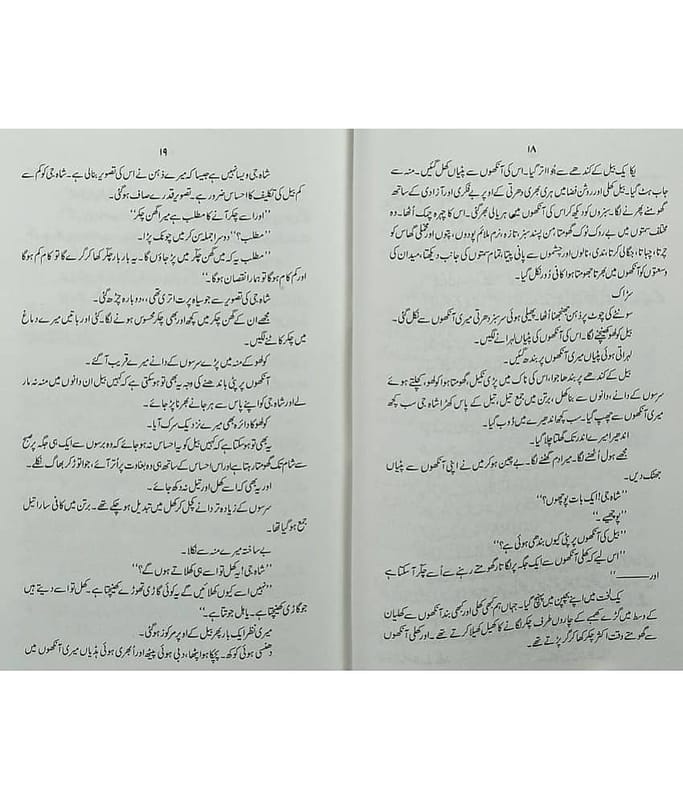 ۱۸
یکا یک بیل کے کندھے سے جُوا اتر گیا۔ اس کی آنکھوں سے پٹیاں کھل گئیں۔ منہ سے
جاب ہٹ گیا۔ بیل کھلی اور روشن فضا میں ہری بھری دھرتی کے اوپر بے فکری اور آزادی کے ساتھ
گھومنے پھرنے لگا۔ سبزوں کو دیکھ کر اس کی آنکھوں میں ہریالی بھر گئی۔ اس کا چہرہ چمک اُٹھا۔ وہ
مختلف سمتوں میں بے روک ٹوک گھومتا، من پسند سبز، تازہ، نرم ملائم پودوں، پتوں اور مخملی گھاس کو
چرتا، چباتا، جگالی کرتا، ندی، نالوں اور چشموں سے پانی پیتا، تمام سمتوں کی جانب دیکھتا، میدان کی
وسعتوں کو آنکھوں میں بھرتا جھومتا ہوا کافی دُور نکل گیا۔
سڑاک
سونٹے کی چوٹ پر ذہن جھنجھنا اٹھا۔ پھیلی ہوئی سرسبز دھرتی میری آنکھوں سے نکل گئی۔
بیل کولھو کھینچنے لگا۔ اس کی آنکھوں کی پٹیاں لہرانے لگیں۔
لہراتی ہوئی پٹیاں میری آنکھوں پر بندھ گئیں۔
بیل کے کندھے پر بندھا جوا، اس کی ناک میں پڑی نکیل، گھومتا ہوا کولھو، کچلتے ہوئے
سرسوں کے دانے، دانوں سے بنا کھل، برتن میں جمع تیل، تیل کے پاس کھڑا شاہ جی سب کچھ
میری آنکھوں سے چھپ گیا۔ سب کچھ اندھیرے میں ڈوب گیا۔
اندھیرا میرے اندر تک گھلتا چلا گیا۔
مجھے ہول اُٹھنے لگا۔ میرا دم گھٹنے لگا۔ بے چین ہو کر میں نے اپنی آنکھوں سے پٹیاں
جھٹک دیں۔
”شاہ جی! ایک بات پوچھوں؟“
”پوچھیے۔“
”بیل کی آنکھوں پر پٹی کیوں بندھی ہوئی ہے؟“
”اس لیے کہ کھلی آنکھوں سے ایک جگہ پر لگاتار گھومتے رہنے سے اُسے چکّر آ سکتا ہے
اور ———“
یک لخت میں اپنے بچپن میں پہنچ گیا۔ جہاں ہم کبھی کھلی اور کبھی بند آنکھوں سے کھلیان
کے وسط میں گڑے کھمبے کے چاروں طرف چکر لگانے کا کھیل کھیلا کرتے تھے۔ اور کھلی آنکھوں
سے گھومتے وقت اکثر چکر کھا کر گر پڑتے تھے۔
۱۹
شاہ جی ویسا نہیں ہے جیسا کہ میرے ذہن نے اس کی تصویر بنالی ہے۔ شاہ جی کو کم سے
کم بیل کی تکلیف کا احساس ضرور ہے۔ تصویر قدرے صاف ہو گئی۔
”اور اسے چکر آنے کا مطلب ہے میرا گھن چکر“
”مطلب؟“ دوسرا جملہ سن کر میں چونک پڑا۔
”مطلب یہ کہ میں گھن چکر میں پڑ جاؤں گا۔ یہ بار بار چکر کھا کر گرے گا تو کام کم ہو گا
اور کم کام ہو گا تو ہمارا نقصان ہو گا۔“
شاہ جی کی تصویر سے جو سیاہ پرت اتری تھی،، دوبارہ چڑھ گئی۔
مجھے ان کے گھن چکر میں کچھ اور بھی چکر محسوس ہونے لگا۔ کئی اور باتیں میرے دماغ
میں چکر کاٹنے لگیں۔
کولھو کے منہ میں پڑے سرسوں کے دانے میرے قریب آگئے۔
آنکھوں پر پٹی باندھنے کی وجہ یہ بھی تو ہو سکتی ہے کہ کہیں بیل ان دانوں میں منہ نہ مار
لے اور شاہ جی کو اپنے پاس سے ہرجانے بھرنا پڑ جائے۔
کولھو کا دائرہ بھی میرے نزدیک سرک آیا۔
یہ بھی تو ہو سکتا ہے کہ کہیں بیل کو یہ احساس نہ ہو جائے کہ وہ برسوں سے ایک ہی جگہ پر صبح
سے شام تک گھومتا رہتا ہے اور اس احساس کے ساتھ ہی وہ بغاوت پر اُتر آئے، جوا توڑ کر بھاگ نکلے۔
اور یہ بھی کہ اسے کھل اور تیل نہ دکھ جائے۔
سرسوں کے زیادہ تر دانے کچل کر کھل میں تبدیل ہو چکے تھے۔ برتن میں کافی سارا تیل
جمع ہو گیا تھا۔
بے ساختہ میرے منہ سے نکلا۔
”شاہ جی! یہ کھل تو اسے ہی کھلاتے ہوں گے؟“
”نہیں، اسے کیوں کھلائیں گے یہ کوئی گاڑی تھوڑے کھینچتا ہے۔ کھل تو اسے دیتے ہیں
جو گاڑی کھینچتا ہے۔ یا ہل جوتتا ہے۔“
میری نظر ایک بار پھر بیل کے اوپر مرکوز ہو گئی۔
دھنسی ہوئی کوکھ۔ پچکا ہوا پٹھا، دبی ہوئی پیٹھ اور اُبھری ہوئی ہڈیاں میری آنکھوں میں